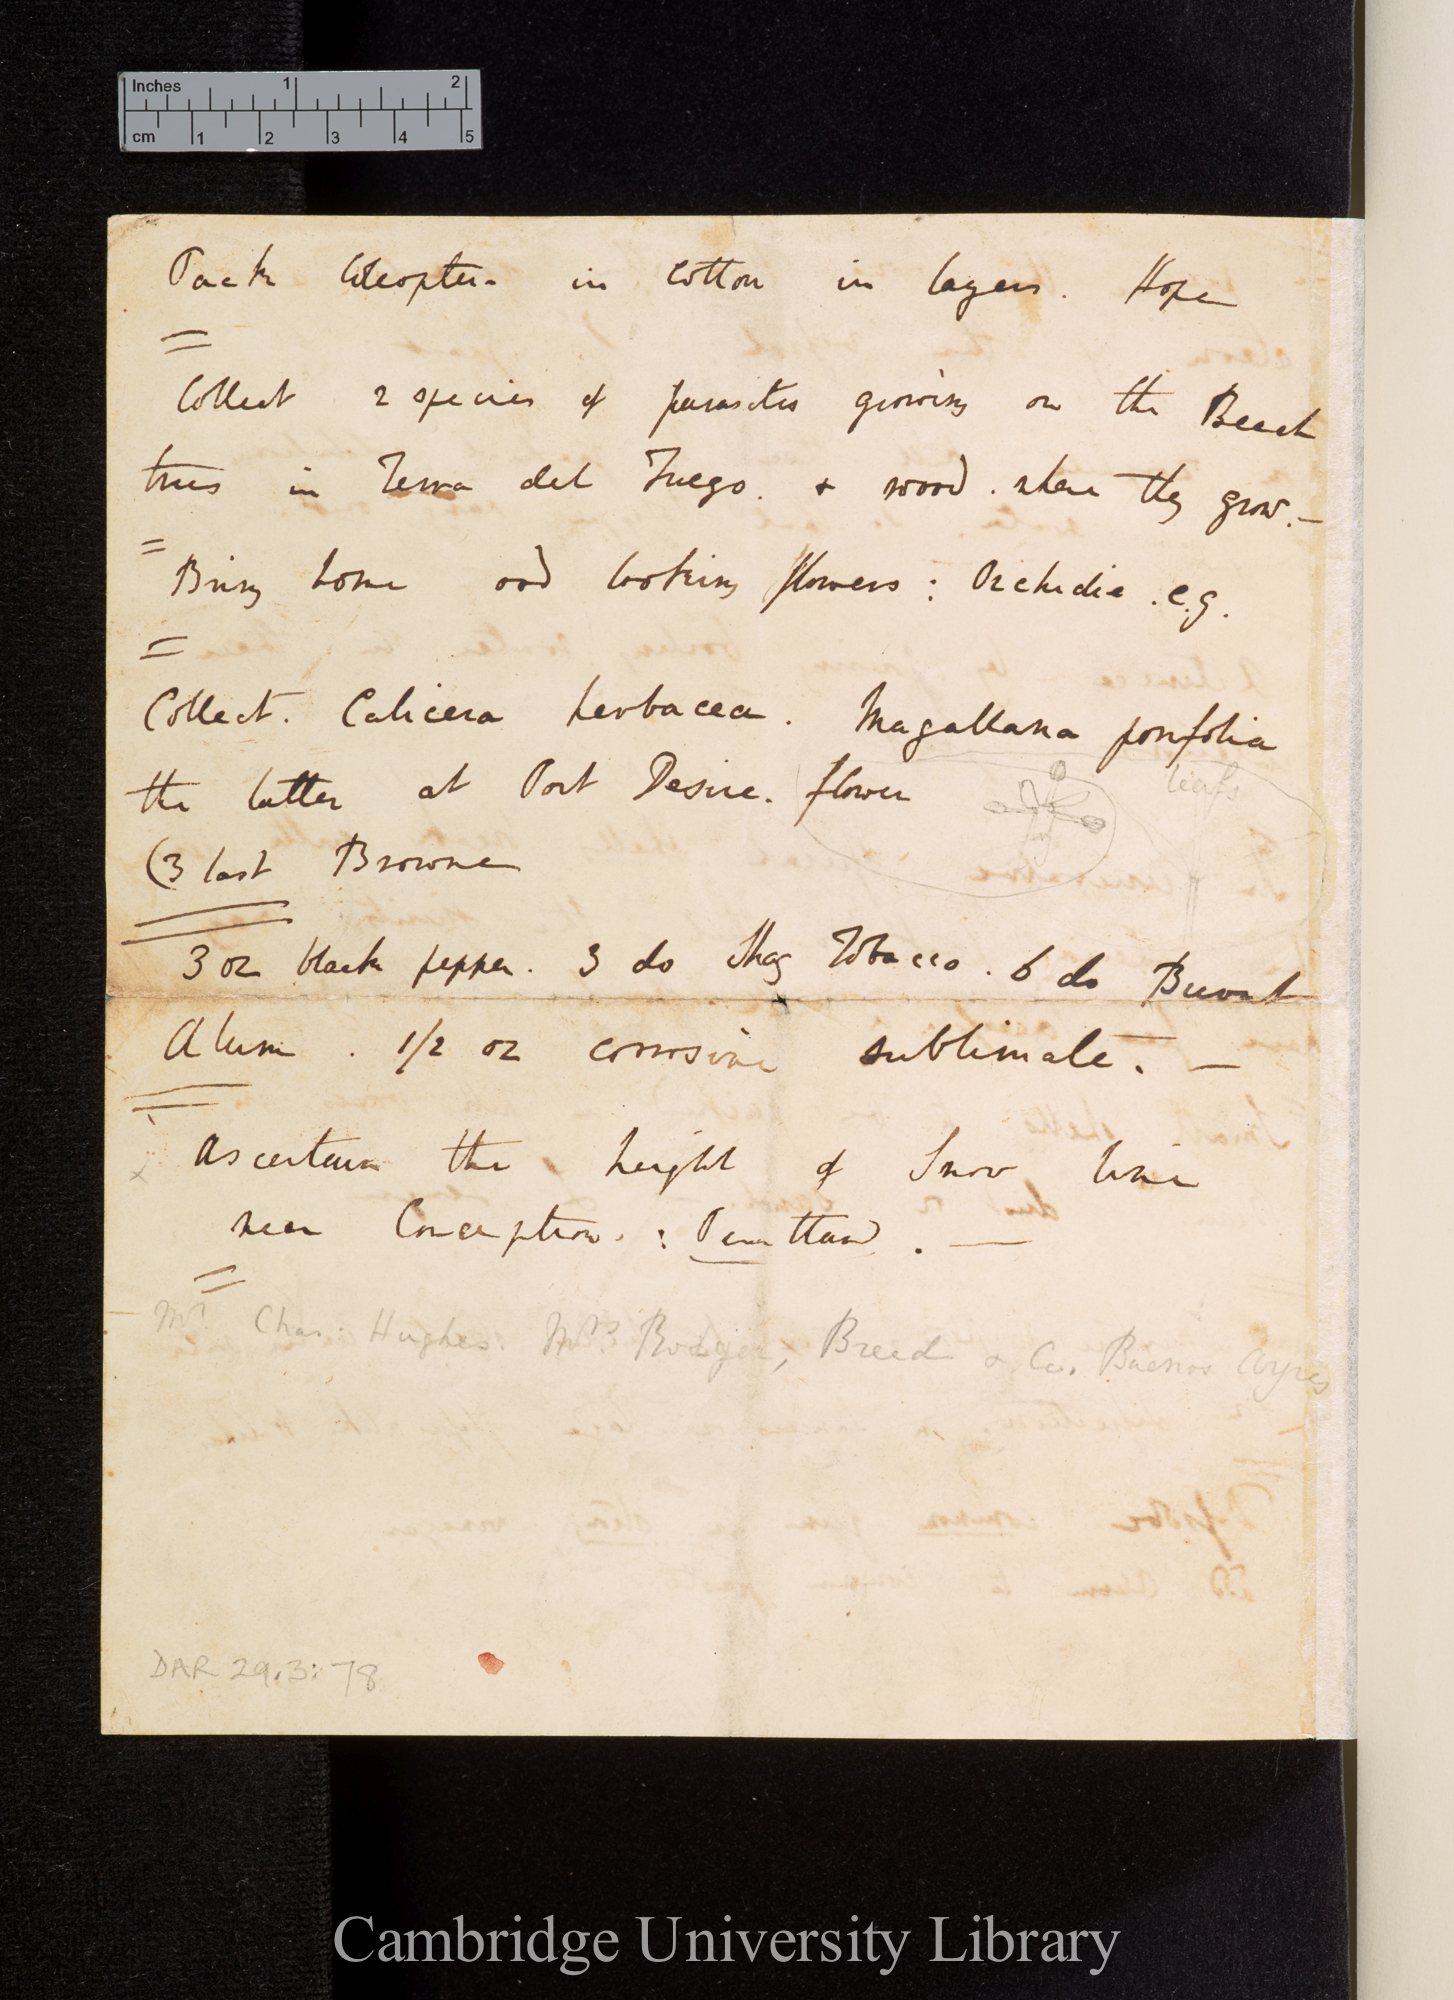 Inches 1 2
cm 1 2 3 4 5
Pack Coleoptera in Cotton in layers. Hope
Collect 2 species of parasites growing on the Beech
trees in Terra del Fuego. & wood. where they grow.—
Bring home odd looking flowers: Orchidiæ. e.g.
Collect. Calicera herbacea. Magallana porifolia
the latter at Port Desire. flower leafs
(3 last Browne
3 oz black pepper. 3 do Shag Tobacco. 6 do Burnt
Alum. 1/2 oz corrosive sublimate. —
x Ascertain the height of Snow line
near Conception. : Pentland. —
Mr. Chas: Hughes. Mrs Rodger, Breed & Co. Buenos Ayres
DAR 29.3:78
Cambridge University Library